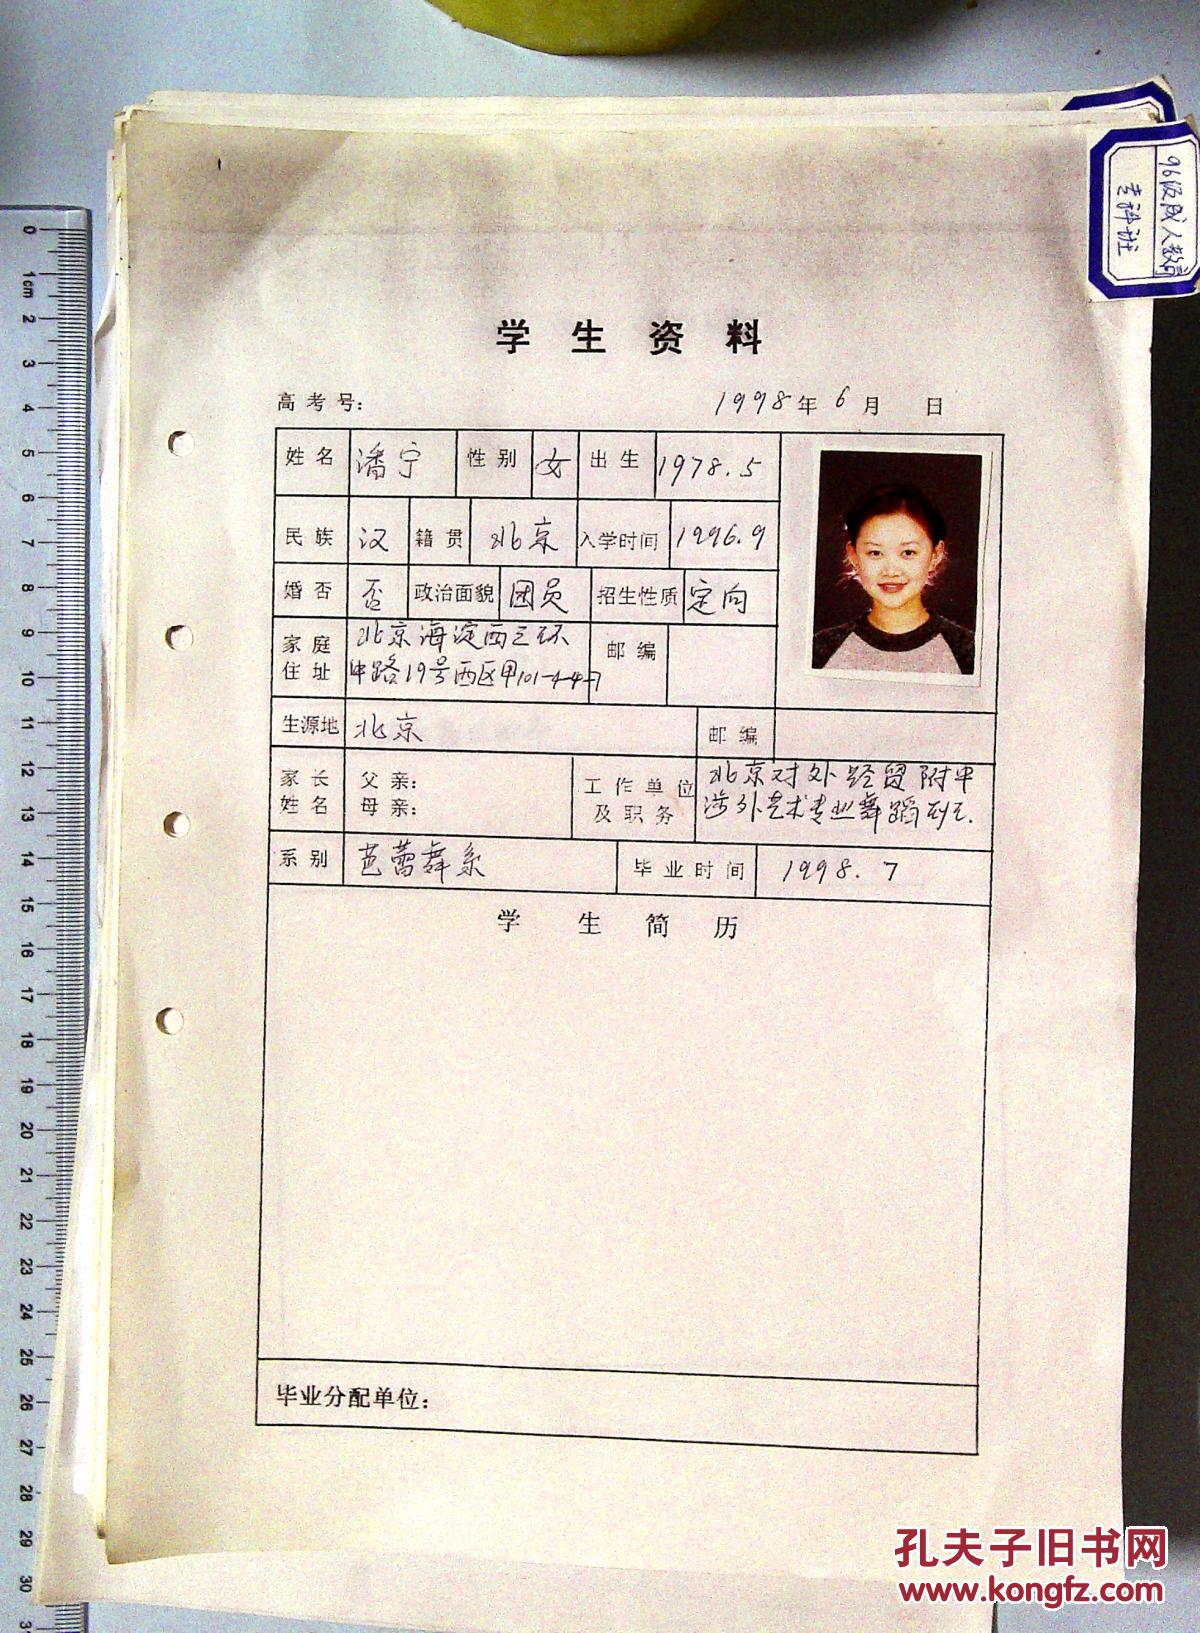 96级成人教育
专科班
学生资料
高考号：
1998年6月 日
姓名 潘宁 性别 女 出生 1978.5
民族 汉 籍贯 北京 入学时间 1996.9
婚否 否 政治面貌 团员 招生性质 定向
家庭住址 北京海淀西三环
中路19号西区甲101-4-4-7 邮编
生源地 北京 邮编
家长姓名 父亲： 工作单位 北京对外经贸附中
母亲： 及职务 涉外艺术专业舞蹈
系别 芭蕾舞系 毕业时间 1998.7
学生简历
毕业分配单位：
孔夫子旧书网
www.kongfz.com
0
1cm
2
3
4
5
6
7
8
9
10
11
12
13
14
15
16
17
18
19
20
21
22
23
24
25
26
27
28
29
30